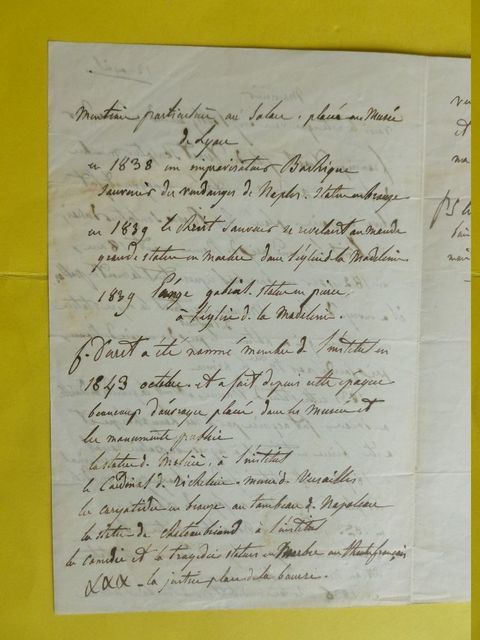 mention particulière au Salon. placé au Musée
de Lyon
en 1838 un improvisateur Bachique
souvenir des vendanges de Naples. statue en bronze
en 1839 le Christ Sauveur se révélant au monde
grande statue en marbre dans l'église de la Madeleine
1839 l'ange gabriel. statue en pierre.
à l'église de la Madeleine.
f. Duret a été nommé membre de l'institut en
1843 octobre. et a fait depuis cette époque
beaucoup d'ouvrages placé dans les Musées et
les monuments publics
la statue de Molière, à l'institut
le Cardinal de richelieu. musée de Versailles
les caryatides en bronze au tombeau de Napoléon
la statue de chateaubriand à l'institut
la comédie et la tragédie statues en Marbre au théâtre français
XXX - la justice place de la bourse.